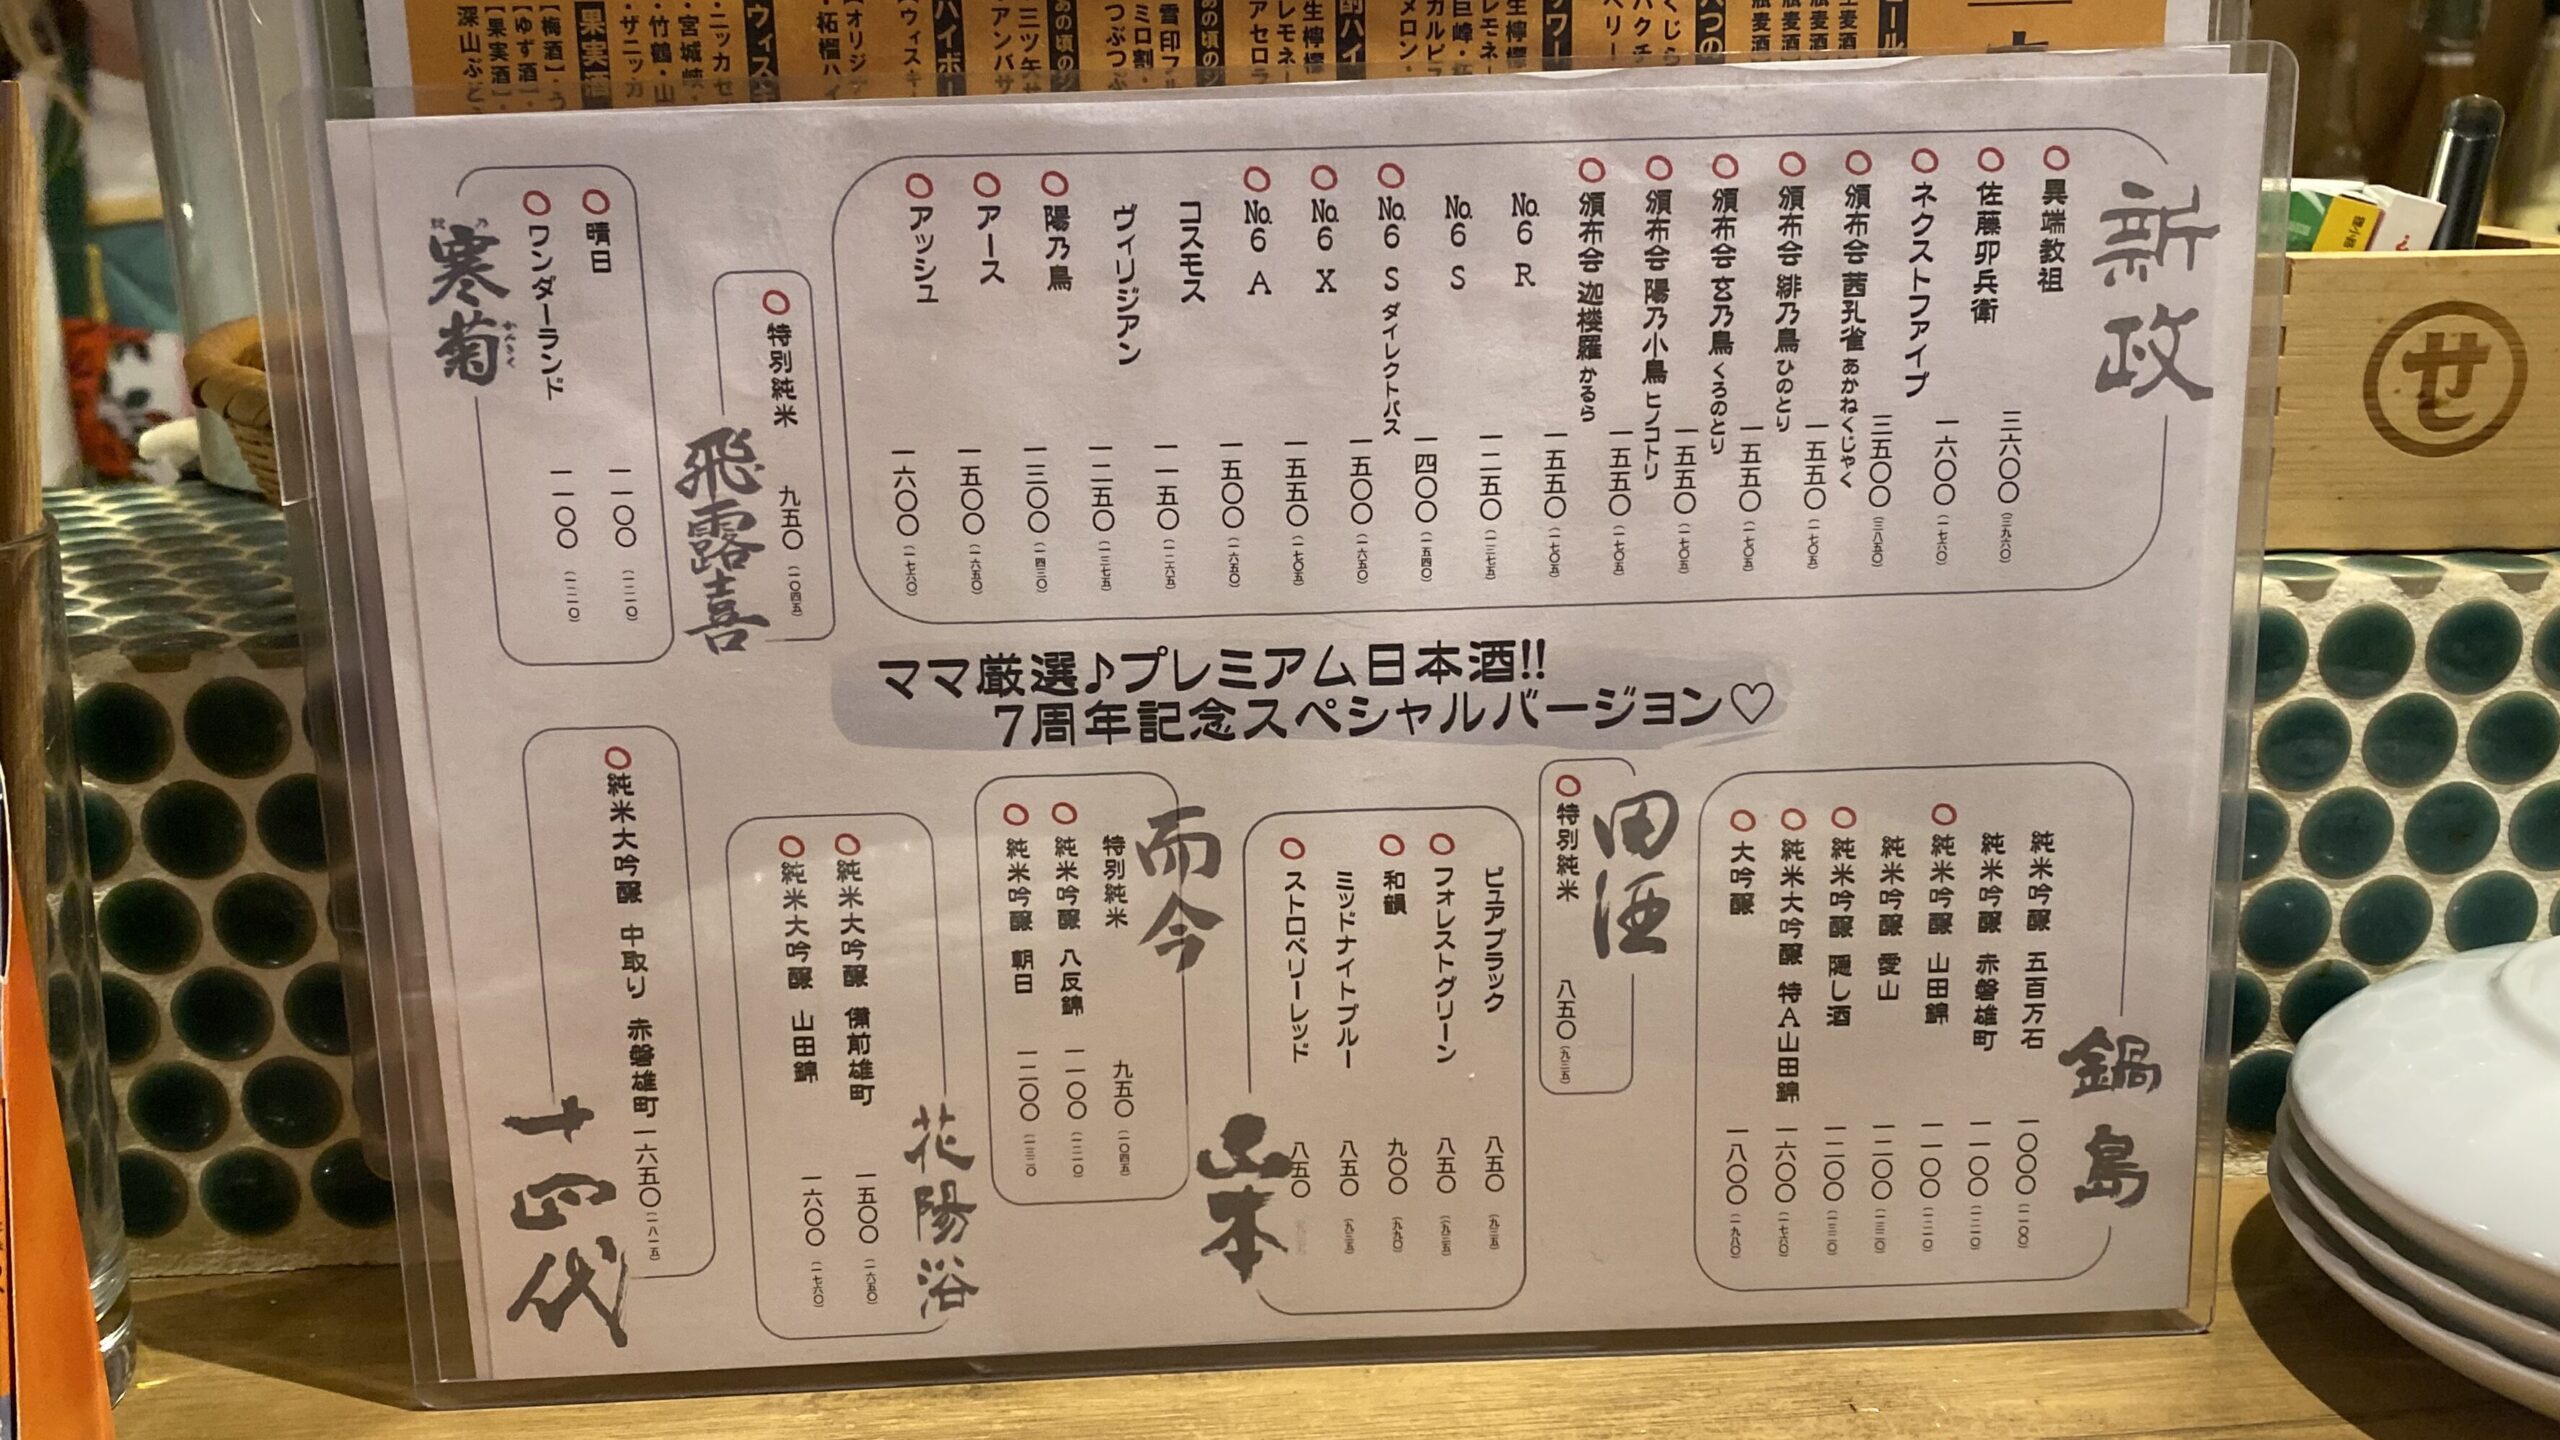 新政
〇異端教祖 三六〇〇(三九六〇)
〇佐藤卯兵衛 一六〇〇(一七六〇)
〇ネクストファイブ 三五〇〇(三八五〇)
〇頒布会 茜孔雀 あかねくじゃく 一五五〇(一七〇五)
〇頒布会 緋乃鳥 ひのとり 一五五〇(一七〇五)
〇頒布会 玄乃鳥 くろのとり 一五五〇(一七〇五)
〇頒布会 陽乃小鳥 ヒノコトリ 一五五〇(一七〇五)
〇頒布会 迦楼羅 かるら 一五五〇(一七〇五)
No.6 R 一二五〇(一三七五)
No.6 S 一四〇〇(一五四〇)
〇No.6 S ダイレクトパス 一五〇〇(一六五〇)
〇No.6 X 一五五〇(一七〇五)
〇No.6 A 一五〇〇(一六五〇)
コスモス 一一五〇(一二六五)
ヴィリジアン 一二五〇(一三七五)
〇陽乃鳥 一三〇〇(一四三〇)
〇アース 一五〇〇(一六五〇)
〇アッシュ 一六〇〇(一七六〇)
飛露喜
〇特別純米 九五〇(一〇四五)
寒菊
かんきく
〇晴日 一一〇〇(一二一〇)
〇ワンダーランド 一一〇〇(一二一〇)
ママ厳選♪プレミアム日本酒!!
7周年記念スペシャルバージョン♡
鍋島
純米吟醸 五百万石 一〇〇〇(一一〇〇)
純米吟醸 赤磐雄町 一一〇〇(一二一〇)
〇純米吟醸 山田錦 一一〇〇(一二一〇)
純米吟醸 愛山 一二〇〇(一三二〇)
〇純米吟醸 隠し酒 一二〇〇(一三二〇)
〇純米大吟醸 特A山田錦 一六〇〇(一七六〇)
〇大吟醸 一八〇〇(一九八〇)
田酒
〇特別純米 八五〇(九三五)
山本
ピュアブラック 八五〇(九三五)
〇フォレストグリーン 八五〇(九三五)
〇和韻 九〇〇(九九〇)
ミッドナイトブルー 八五〇(九三五)
〇ストロベリーレッド 八五〇
而今
特別純米 九五〇(一〇四五)
〇純米吟醸 八反錦 一一〇〇(一二一〇)
〇純米吟醸 朝日 一二〇〇(一三二〇)
花陽浴
〇純米大吟醸 備前雄町 一五〇〇(一六五〇)
〇純米大吟醸 山田錦 一六〇〇(一七六〇)
十四代
〇純米大吟醸 中取り 赤磐雄町 一六五〇(一八一五)
せ